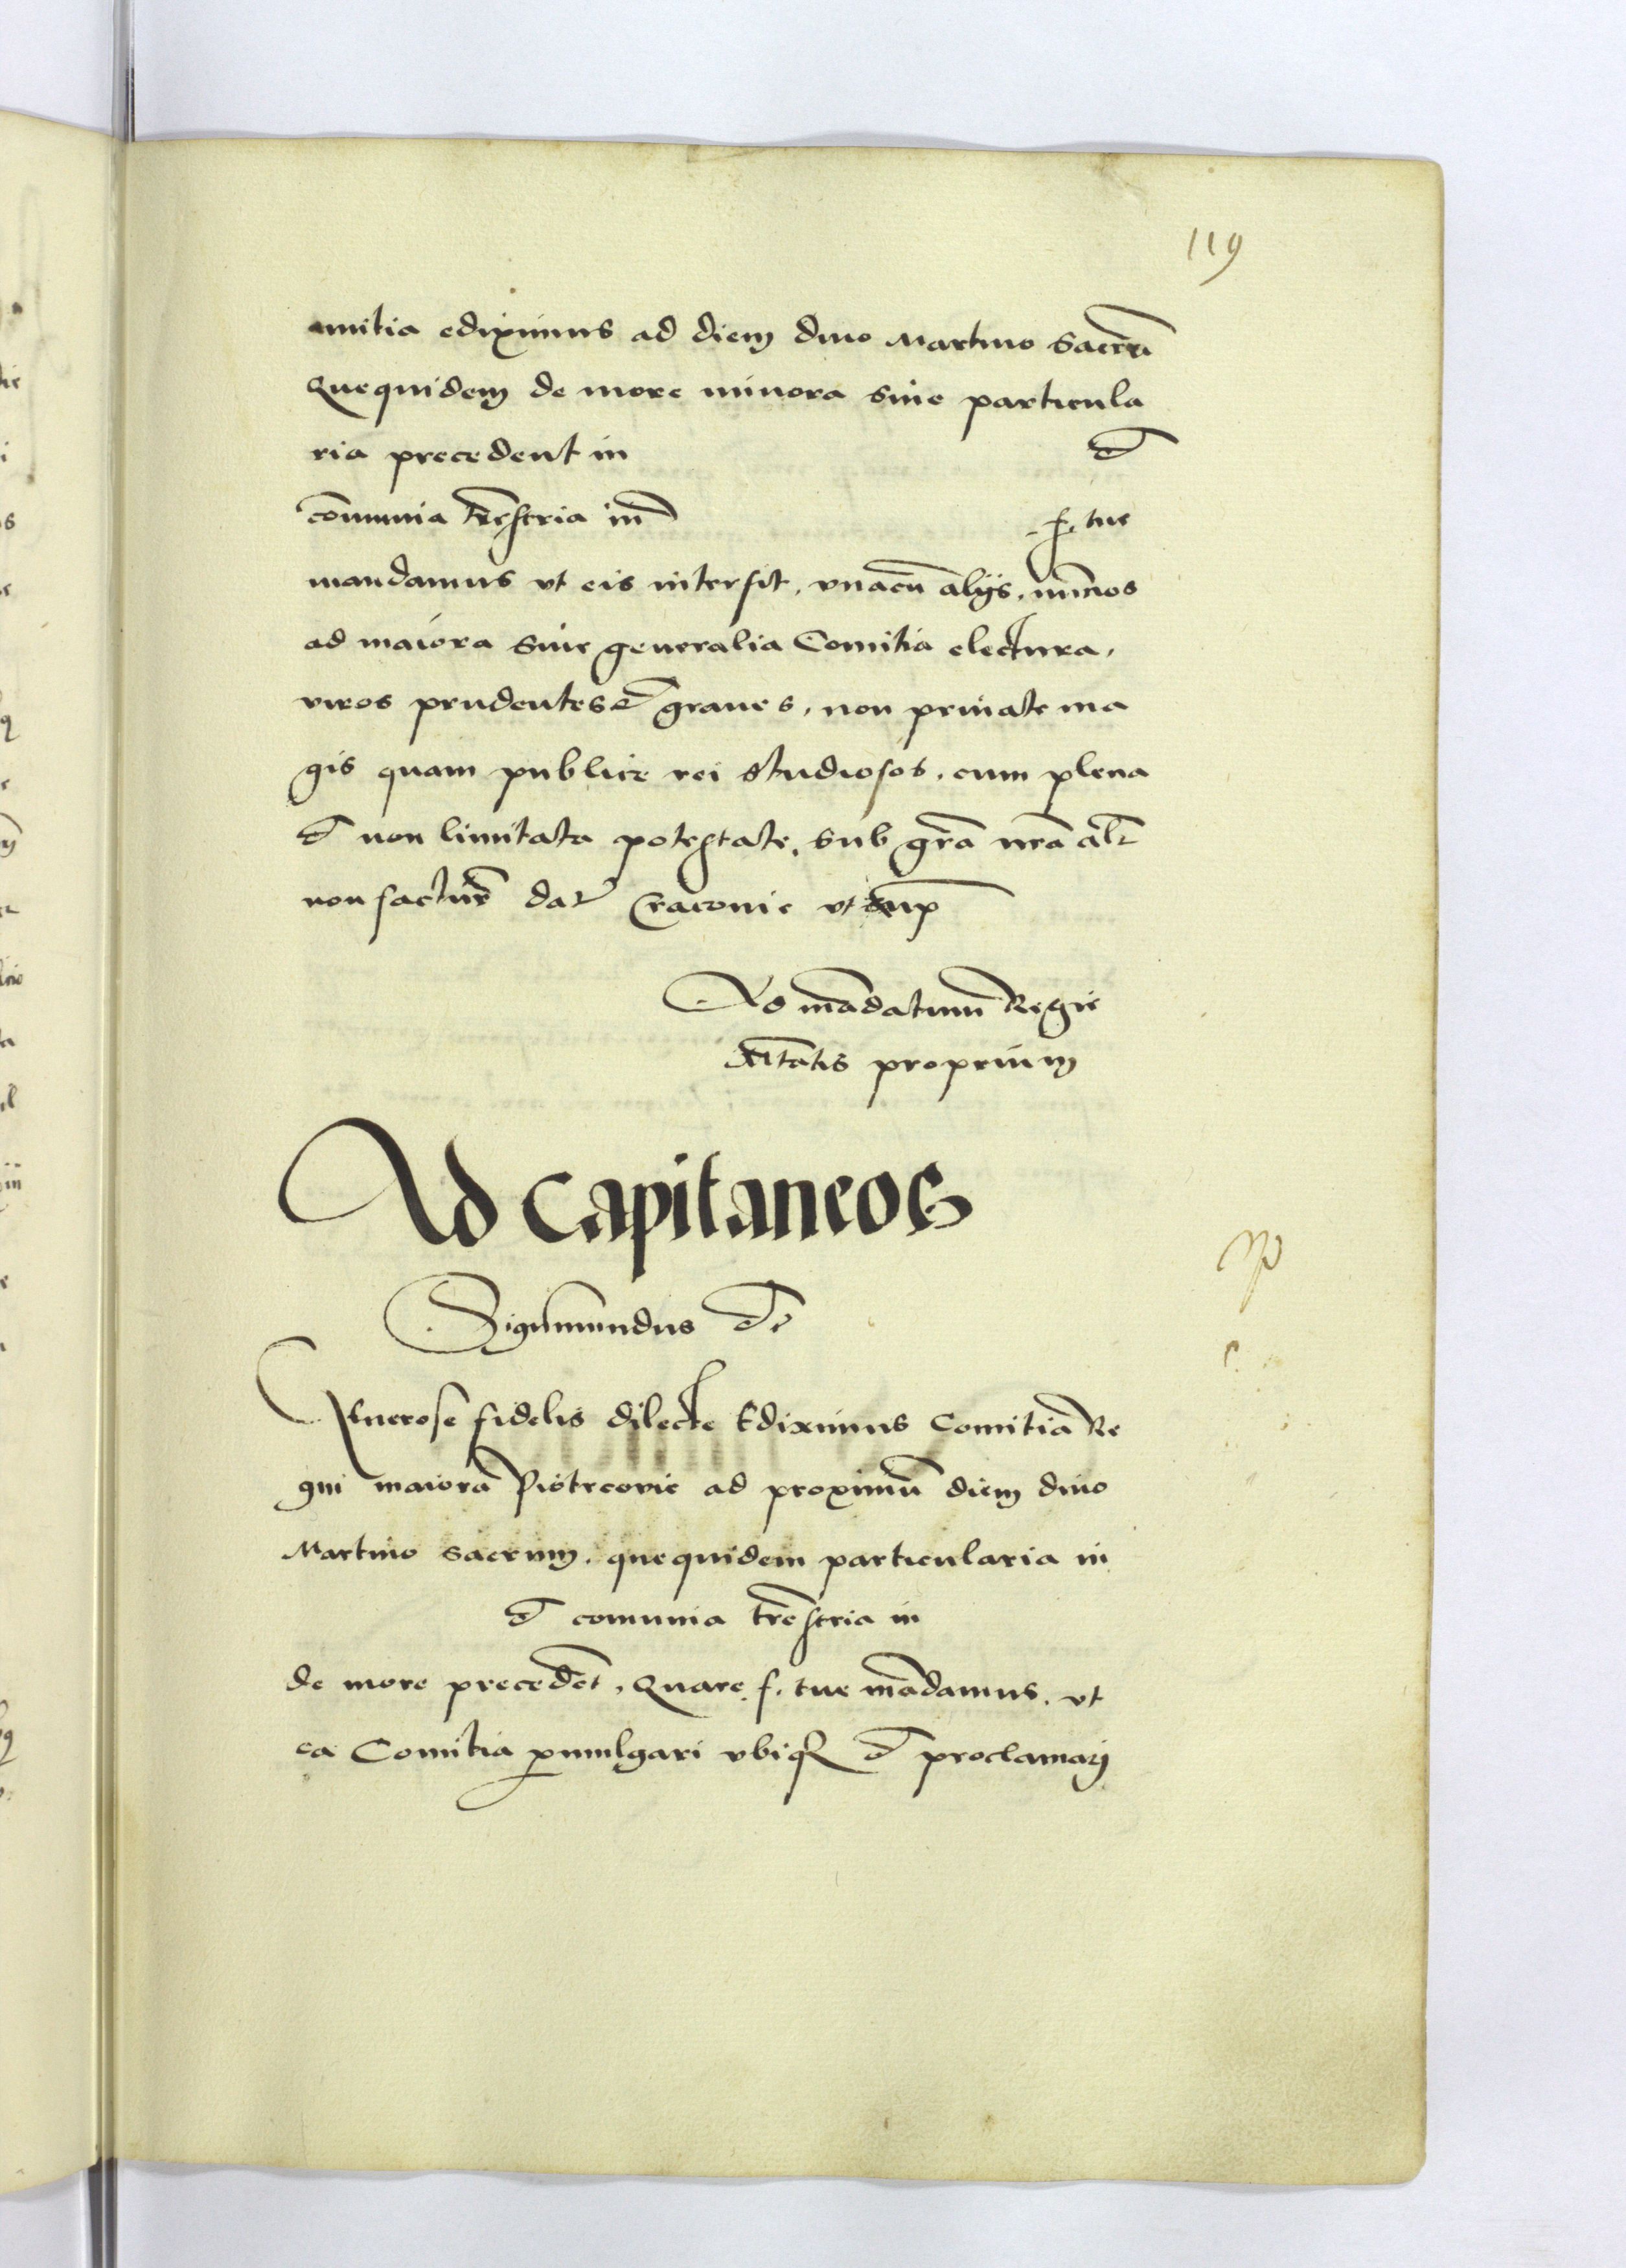 119
mitia ediximus ad diem diuo Martino Sacrũ
Quequidem de more minora siue particula
ria precedent in et
cõmunia trẽstria in f. tue
mandamus vt eis intersit, vnacũ alijs, nuncios
ad maiora siue generalia Comitia electura,
viros prudentes et graues, non priuate ma
gis quam publice rei studiosos, cum plena
et non limitata potestate, sub gra nra alr
non factur dat Cracouie vt sup
Ad mãdatum Regie
Mtatis proprium
Ad Capitaneos
Sigismundus etc
Generose fidelis dilecte Ediximus Comitia Re
gni maiora Piotrcovie ad proximũ diem diuo
Martino sacrum, quequidem particularia in
et comunia trẽstria in
de more precedẽt, Quare f. tue mãdamus, vt
ea Comitia pmulgari vbiq et proclamarj